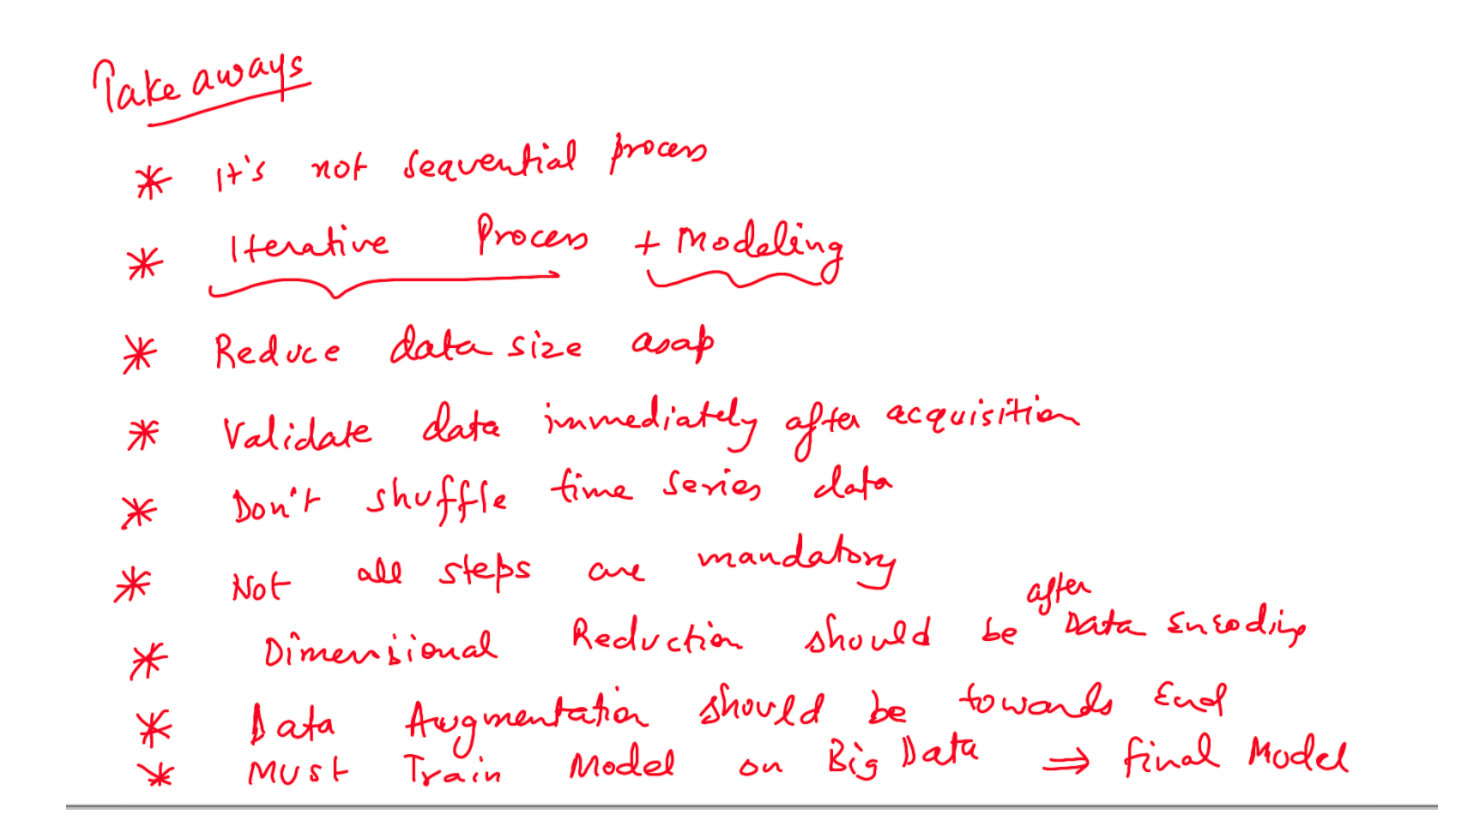 Take aways
* It's not sequential process
* Iterative Process + Modeling
* Reduce data size asap
* Validate data immediately after acquisition
* Don't shuffle time series data
* Not all steps are mandatory
* Dimensional Reduction should be after Data Encoding
* Data Augmentation should be towards End
* Must Train Model on Big Data ⇒ final Model